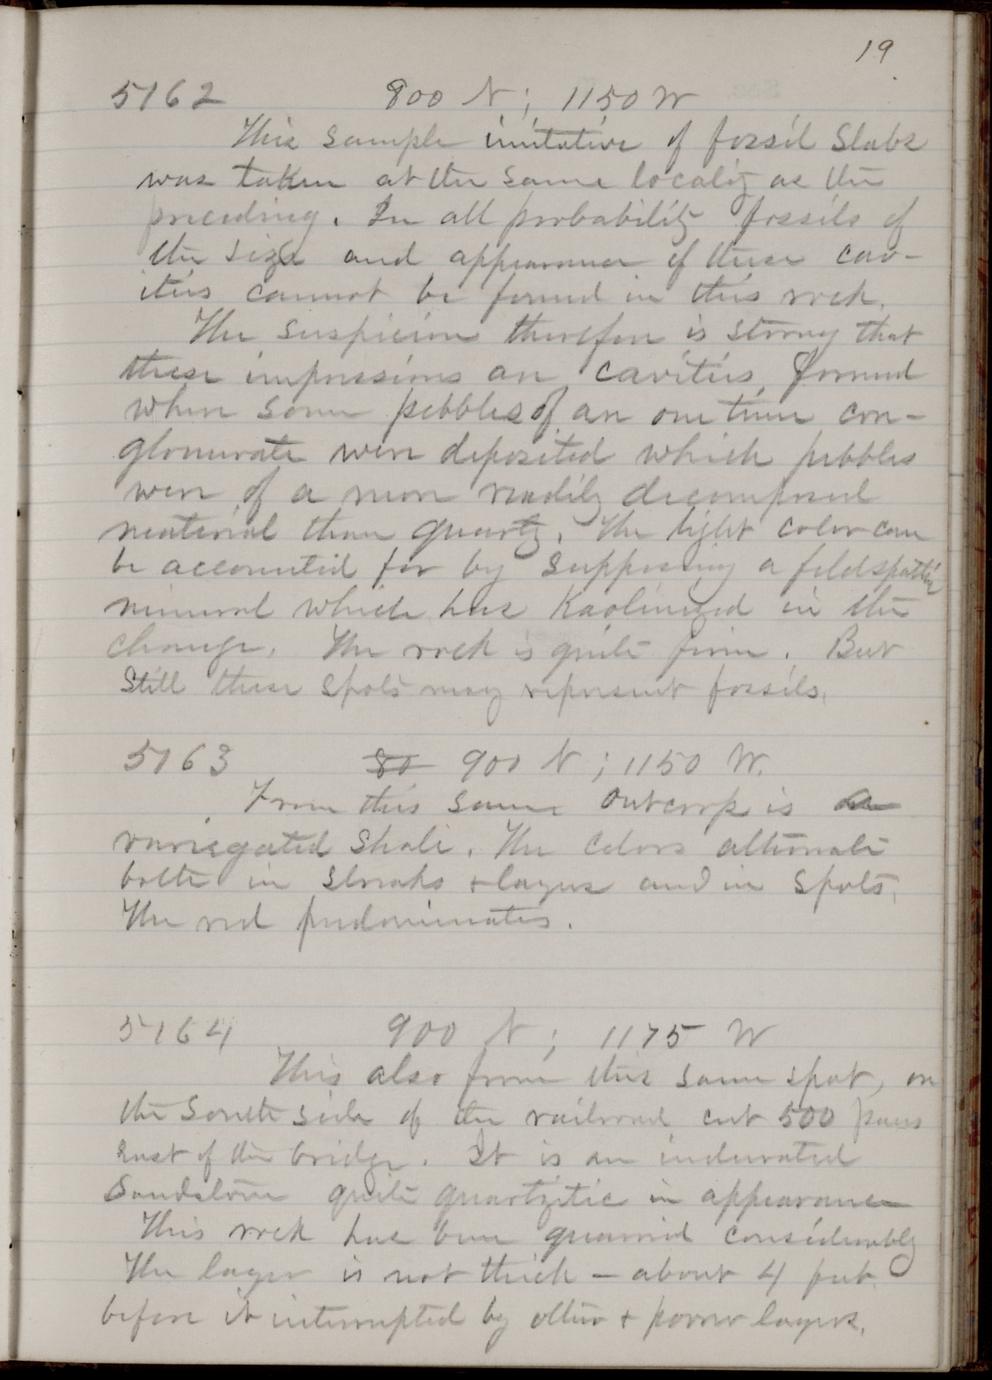 19
5162 800 N; 1150 W
This sample imitative of fossil slabs
was taken at the same locality as the
preceding. In all probability fossils of
the size and appearance of these cav-
ities cannot be found in this rock.
The suspicion therefore is strong that
these impressions are cavities, formed
when some pebbles of an one time con-
glomerate were deposited which pebbles
were of a more readily decomposed
material than quartz. The light color can
be accounted for by supposing a feldspathic
mineral which has kaolinized in the
change. The rock is quite firm. But
still these spots may represent fossils.
5163 80 900 N; 1150 W.
From this same outcrop is
variegated shale. The colors alternate
both in streaks + layers and in spots.
The red predominates.
5164 900 N; 1175 W
This also from this same spot, on
the south side of the railroad cut 500 paces
east of the bridge. It is an indurated
sandstone quite quartzitic in appearance
This rock has been quarried considerably
The layer is not thick – about 4 feet.
before it interrupted by other + poorer layers.